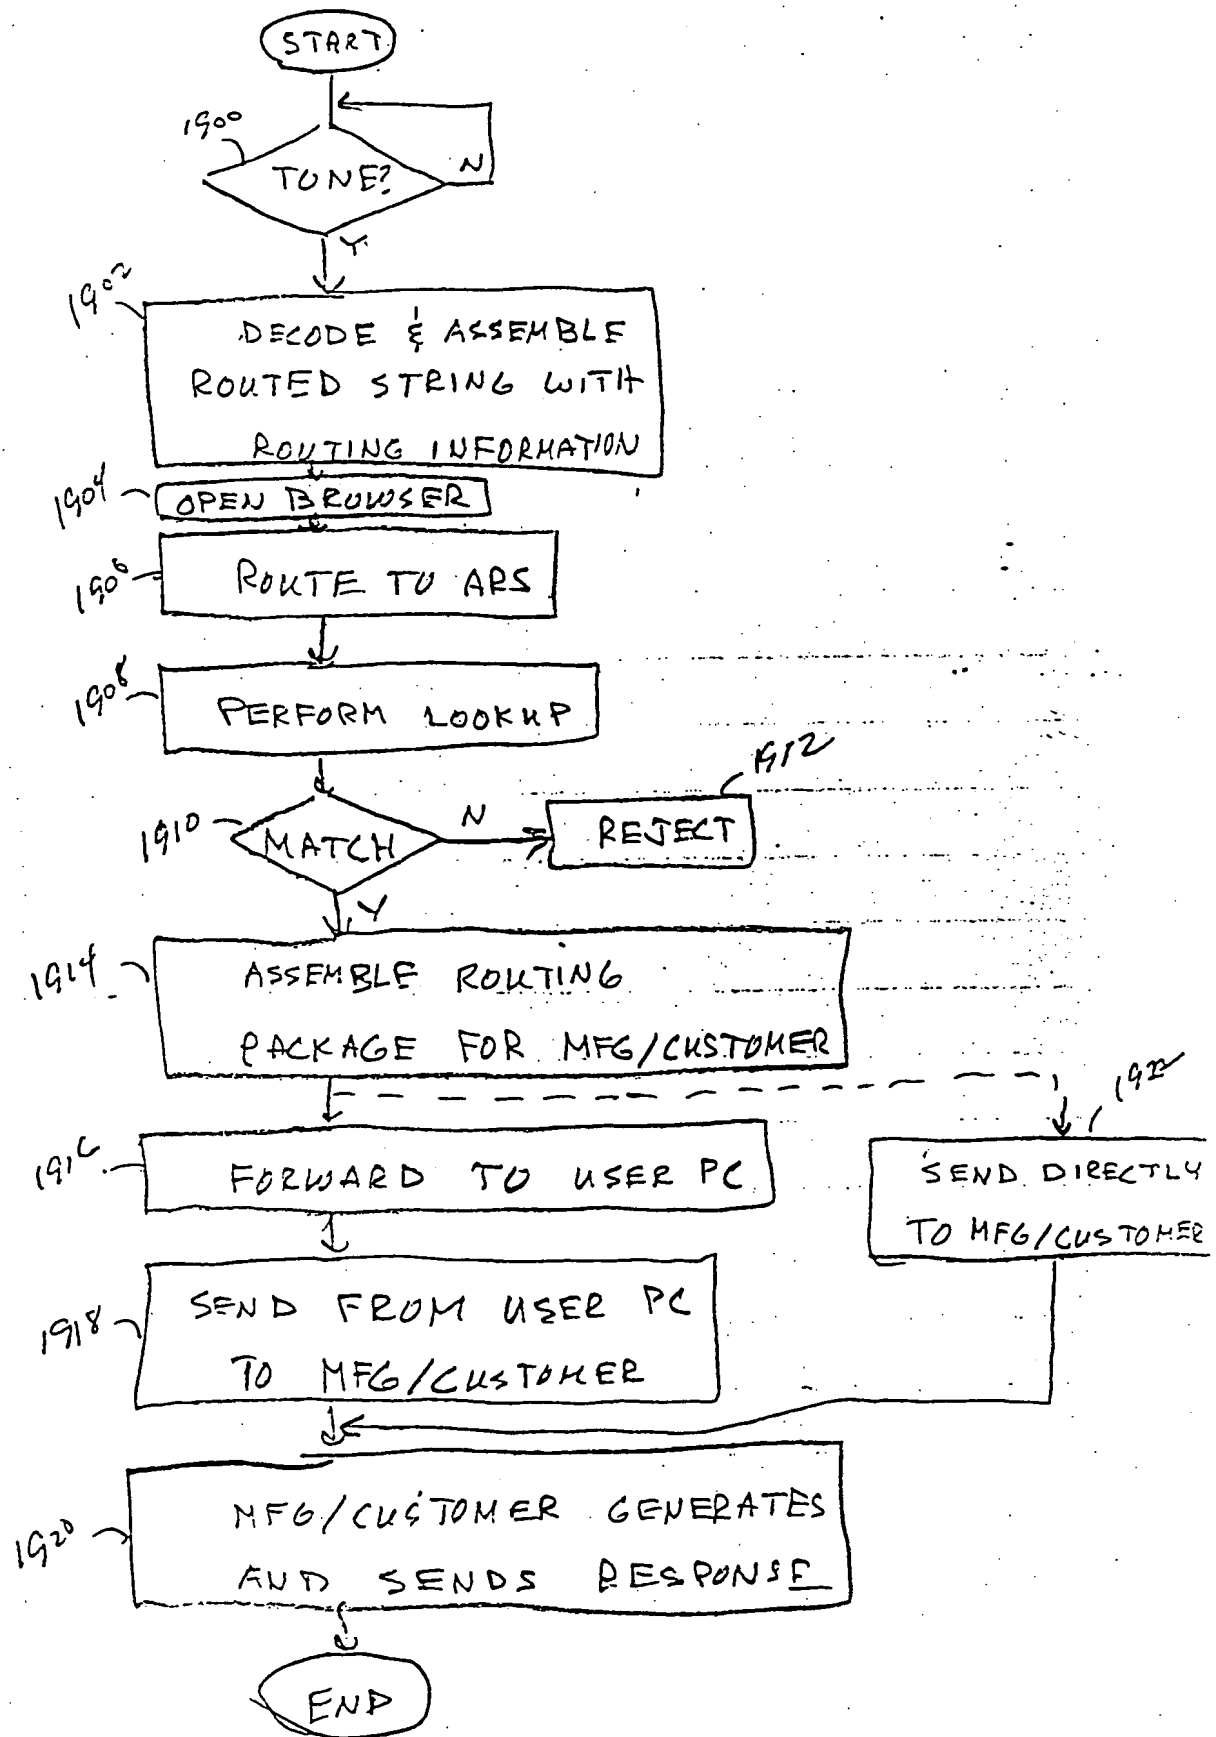 START
1900
TONE?
N
Y
1902
DECODE & ASSEMBLE
ROUTED STRING WITH
ROUTING INFORMATION
1904
OPEN BROWSER
1906
ROUTE TO ARS
1908
PERFORM LOOKUP
1912
1910
MATCH
N
REJECT
Y
1914
ASSEMBLE ROUTING
PACKAGE FOR MFG/CUSTOMER
1922
1916
FORWARD TO USER PC
SEND DIRECTLY
TO MFG/CUSTOMER
1918
SEND FROM USER PC
TO MFG/CUSTOMER
1920
MFG/CUSTOMER GENERATES
AND SENDS RESPONSE
END